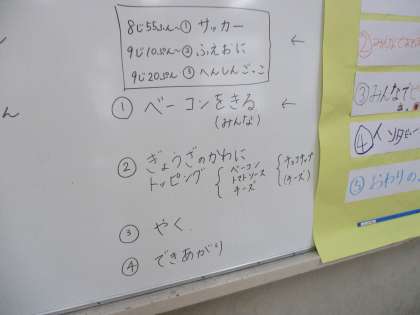 8じ55ふん〜① サッカー
9じ10ぷん〜② ふえおに
9じ20ぷん ③ へんしんごっこ
←
① ベーコンをきる ←
(みんな)
② ぎょうざのかわに
トッピング
ベーコン
トマトソース
チーズ
(チーズ)
③ やく
④ できあがり
ん
②
③みんなでピ
④インタビー
⑤おわりの